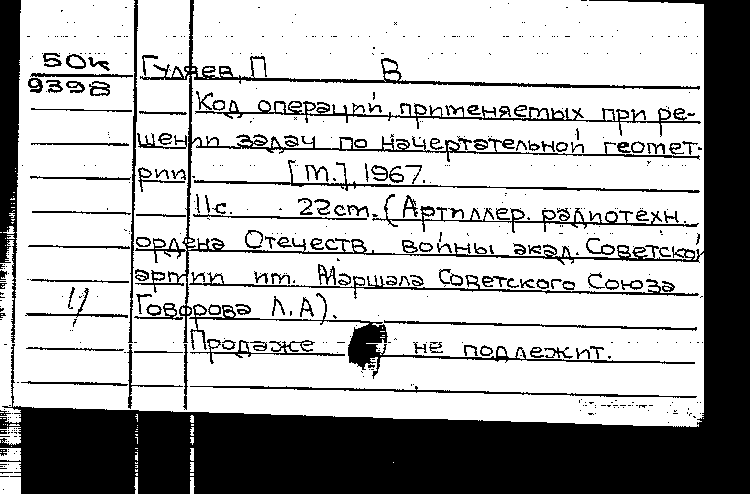 50к
9398
Гуляев, П В
Код операций, применяемых при ре-
шении задач по начертательной геомет-
рии [М.], 1967.
11с. 22cm. (Артиллер. радиотехн.
ордена Отечеств. войны акад. Советской
армии им. Маршала Советского Союза
Говорова Л.А).
Продаже не подлежит.